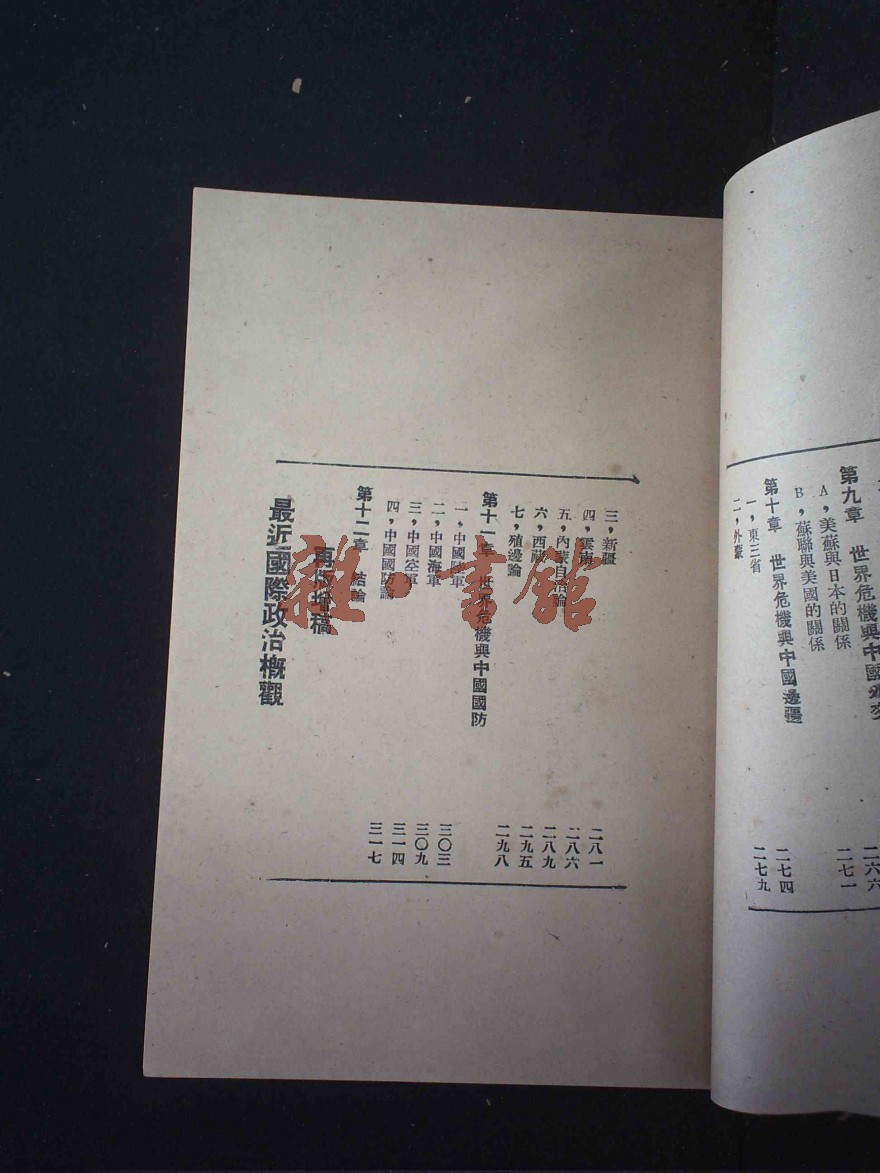 第九章　世界危機與中國
A，美蘇與日本的關係　二六六
B，蘇聯與美國的關係　二七一
第十章　世界危機與中國邊疆
一，東三省　二七四
二，外蒙　二七九
三，新疆　二八一
四，雲南　二八六
五，內蒙自治論　二八九
六，西藏　二九五
七，殖邊論　二九八
第十一章　世界危機與中國國防
一，中國陸軍　三〇三
二，中國海軍　三〇九
三，中國空軍　三一四
四，中國國防論　三一七
第十二章　結論
再版增稿
最近國際政治概觀
雜·書館